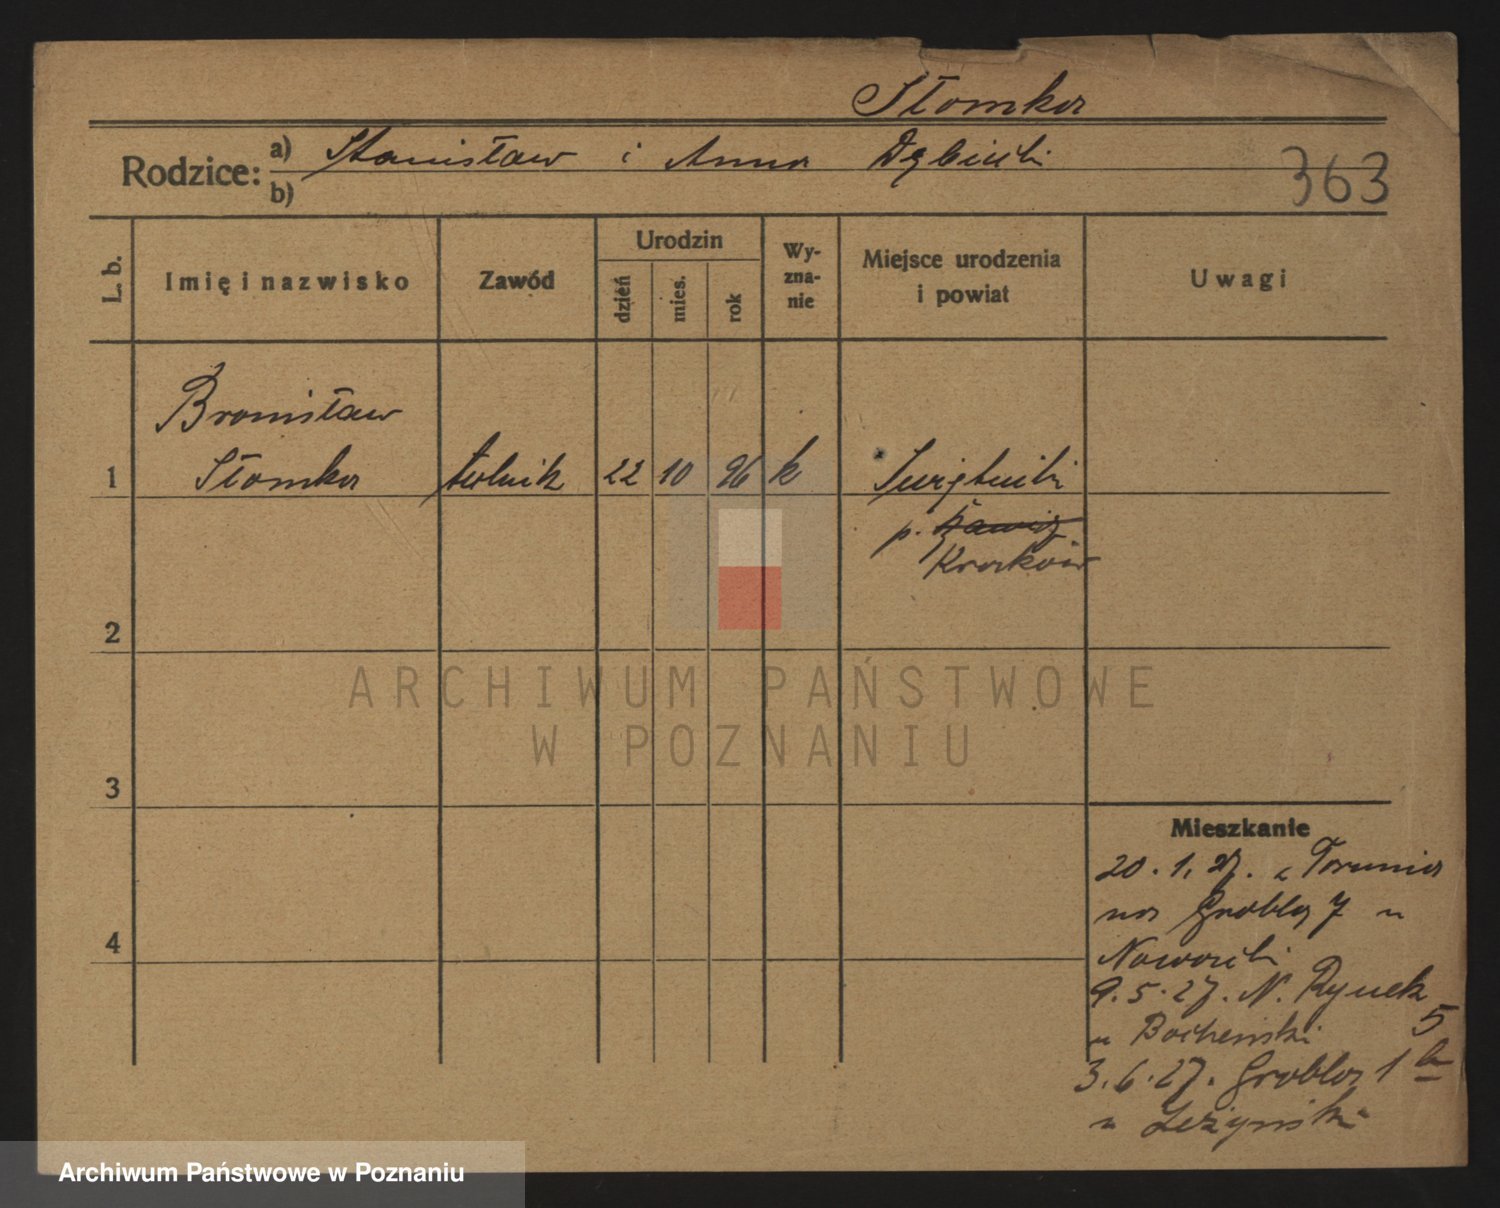 Słomka
Rodzice: a) Stanisław i Anna
b)
363
L. b.
Imię i nazwisko
Zawód
Urodzin
dzień
mies.
rok
Wy-
zna-
nie
Miejsce urodzenia
i powiat
Uwagi
Bronisław
1 Słomka 22 10 96 k
p.
Kraków
2
3
4
Mieszkanie
20.1.27. z Torunia
na Grobla 7 u
9.5.27. N. Rynek 5
u Bocheński
3.6.27. Grobla 1
u
ARCHIWUM PAŃSTWOWE
W POZNANIU
Archiwum Państwowe w Poznaniu